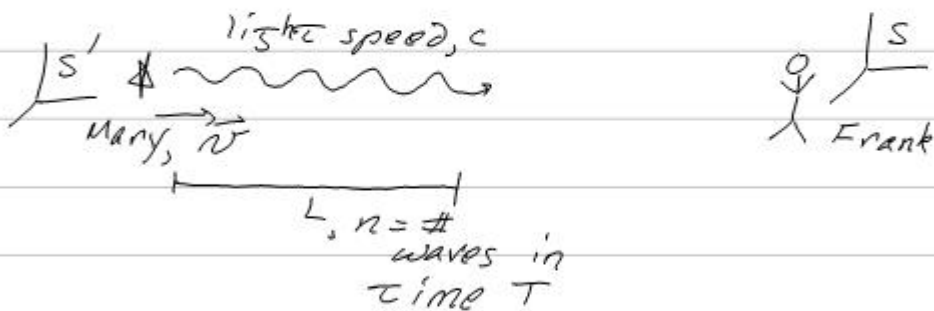 light speed, c
S'
S
Mary, v⃗
Frank
L, n = #
waves in
time T